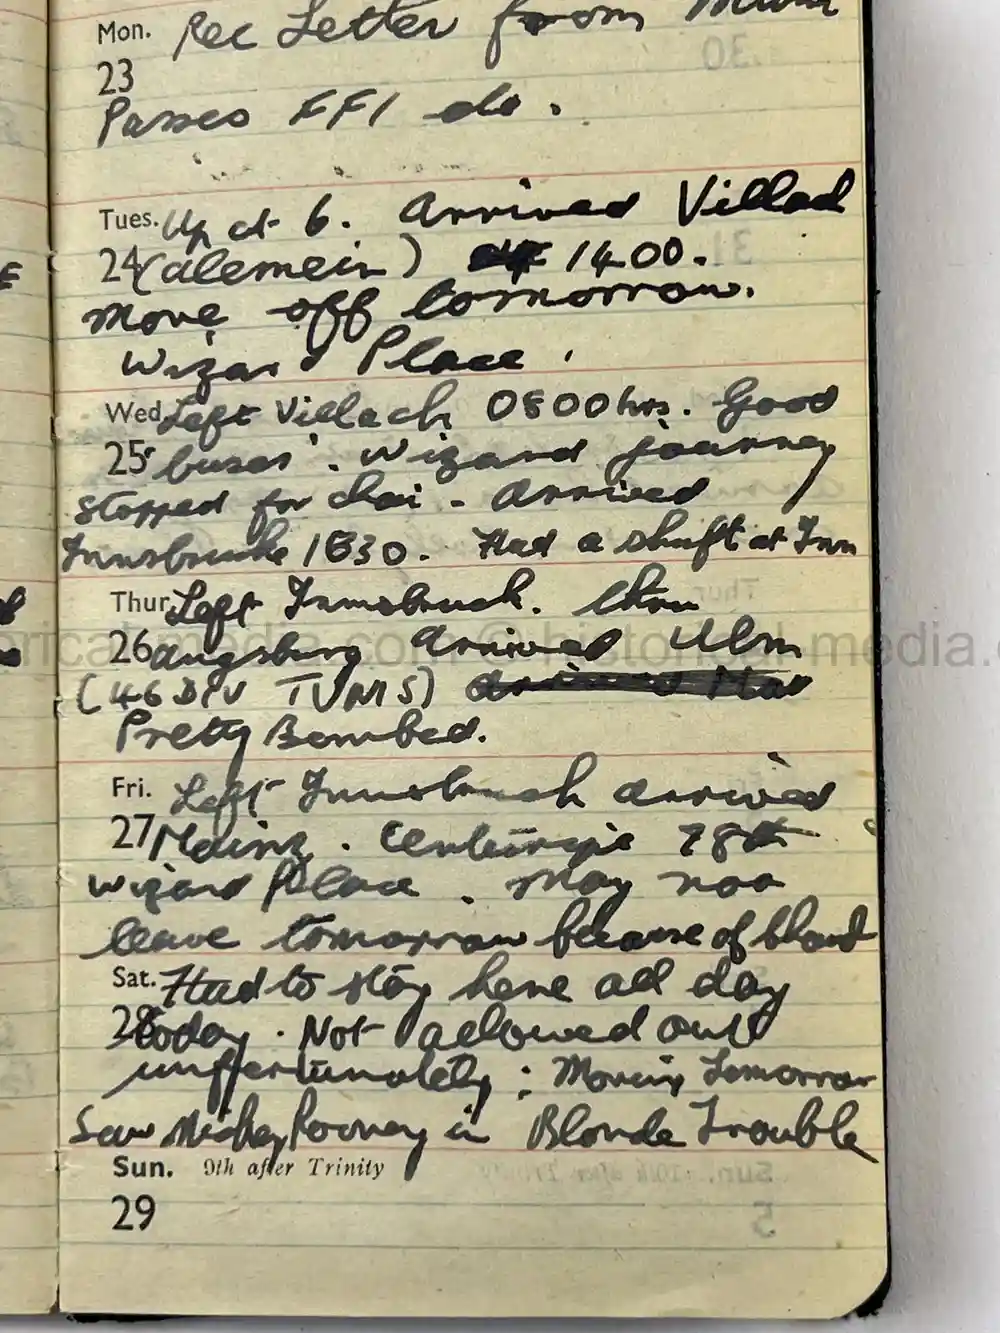 Mon. Rec Letter from Mum
23
Passed FFI etc.
Tues. Up at 6. Arrived Villach
24 (Alemein) 1400.
Move off tomorrow.
Wizard Place.
Wed Left Villach 0800 hrs. Good
25 buses. Wizard journey
stopped for chai - Arrived
Innsbruck 1630. Had a shufti at Inn
Thur Left Innsbruck. thru
26 Augsburg Arrived Ulm
(46 DIV
Pretty Bombed.
Fri. Left Innsbruch arrived
27 Mainz. 78th
Wizard Place. May not
leave tomorrow because of
Sat. Had to stay here all day
28 today. Not allowed out
unffertunately: Moving Tomorrow
Saw Mickey Rooney in Blonde Trouble
Sun. 9th after Trinity
29
historical-media.com © historical-media.com